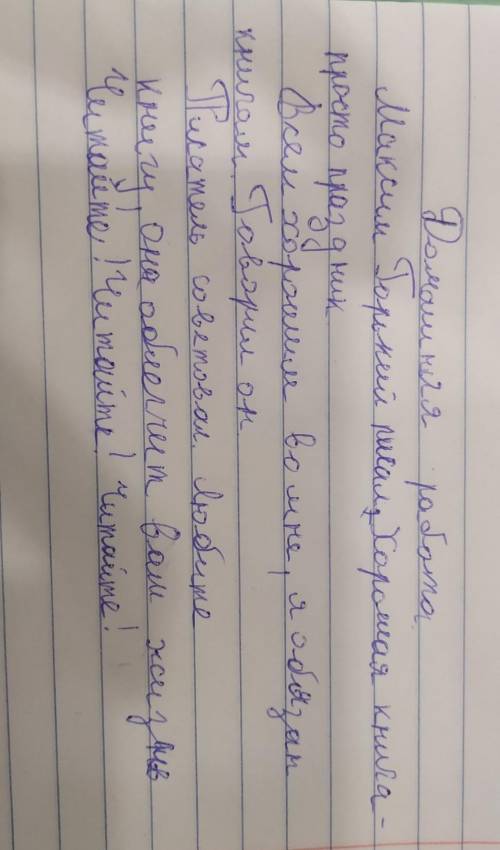 Домашняя работа.
Максим Горький писал, Хорошая книга-
просто праздник
Всем хорошим во мне, я обязан
книгам. Говорил он
Писатель советовал. Любите
книгу, она облегчит вам жизнь
Читайте! Читайте! Читайте!